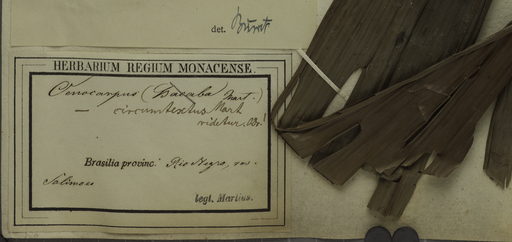 det. Burret
HERBARIUM REGIUM MONACENSE.
Oenocarpus (Bacaba Mart.)
— circumtextus Mart
videtur. Br.!
Brasilia provinc: Rio Negro,
Solimoes
legt. Martius.